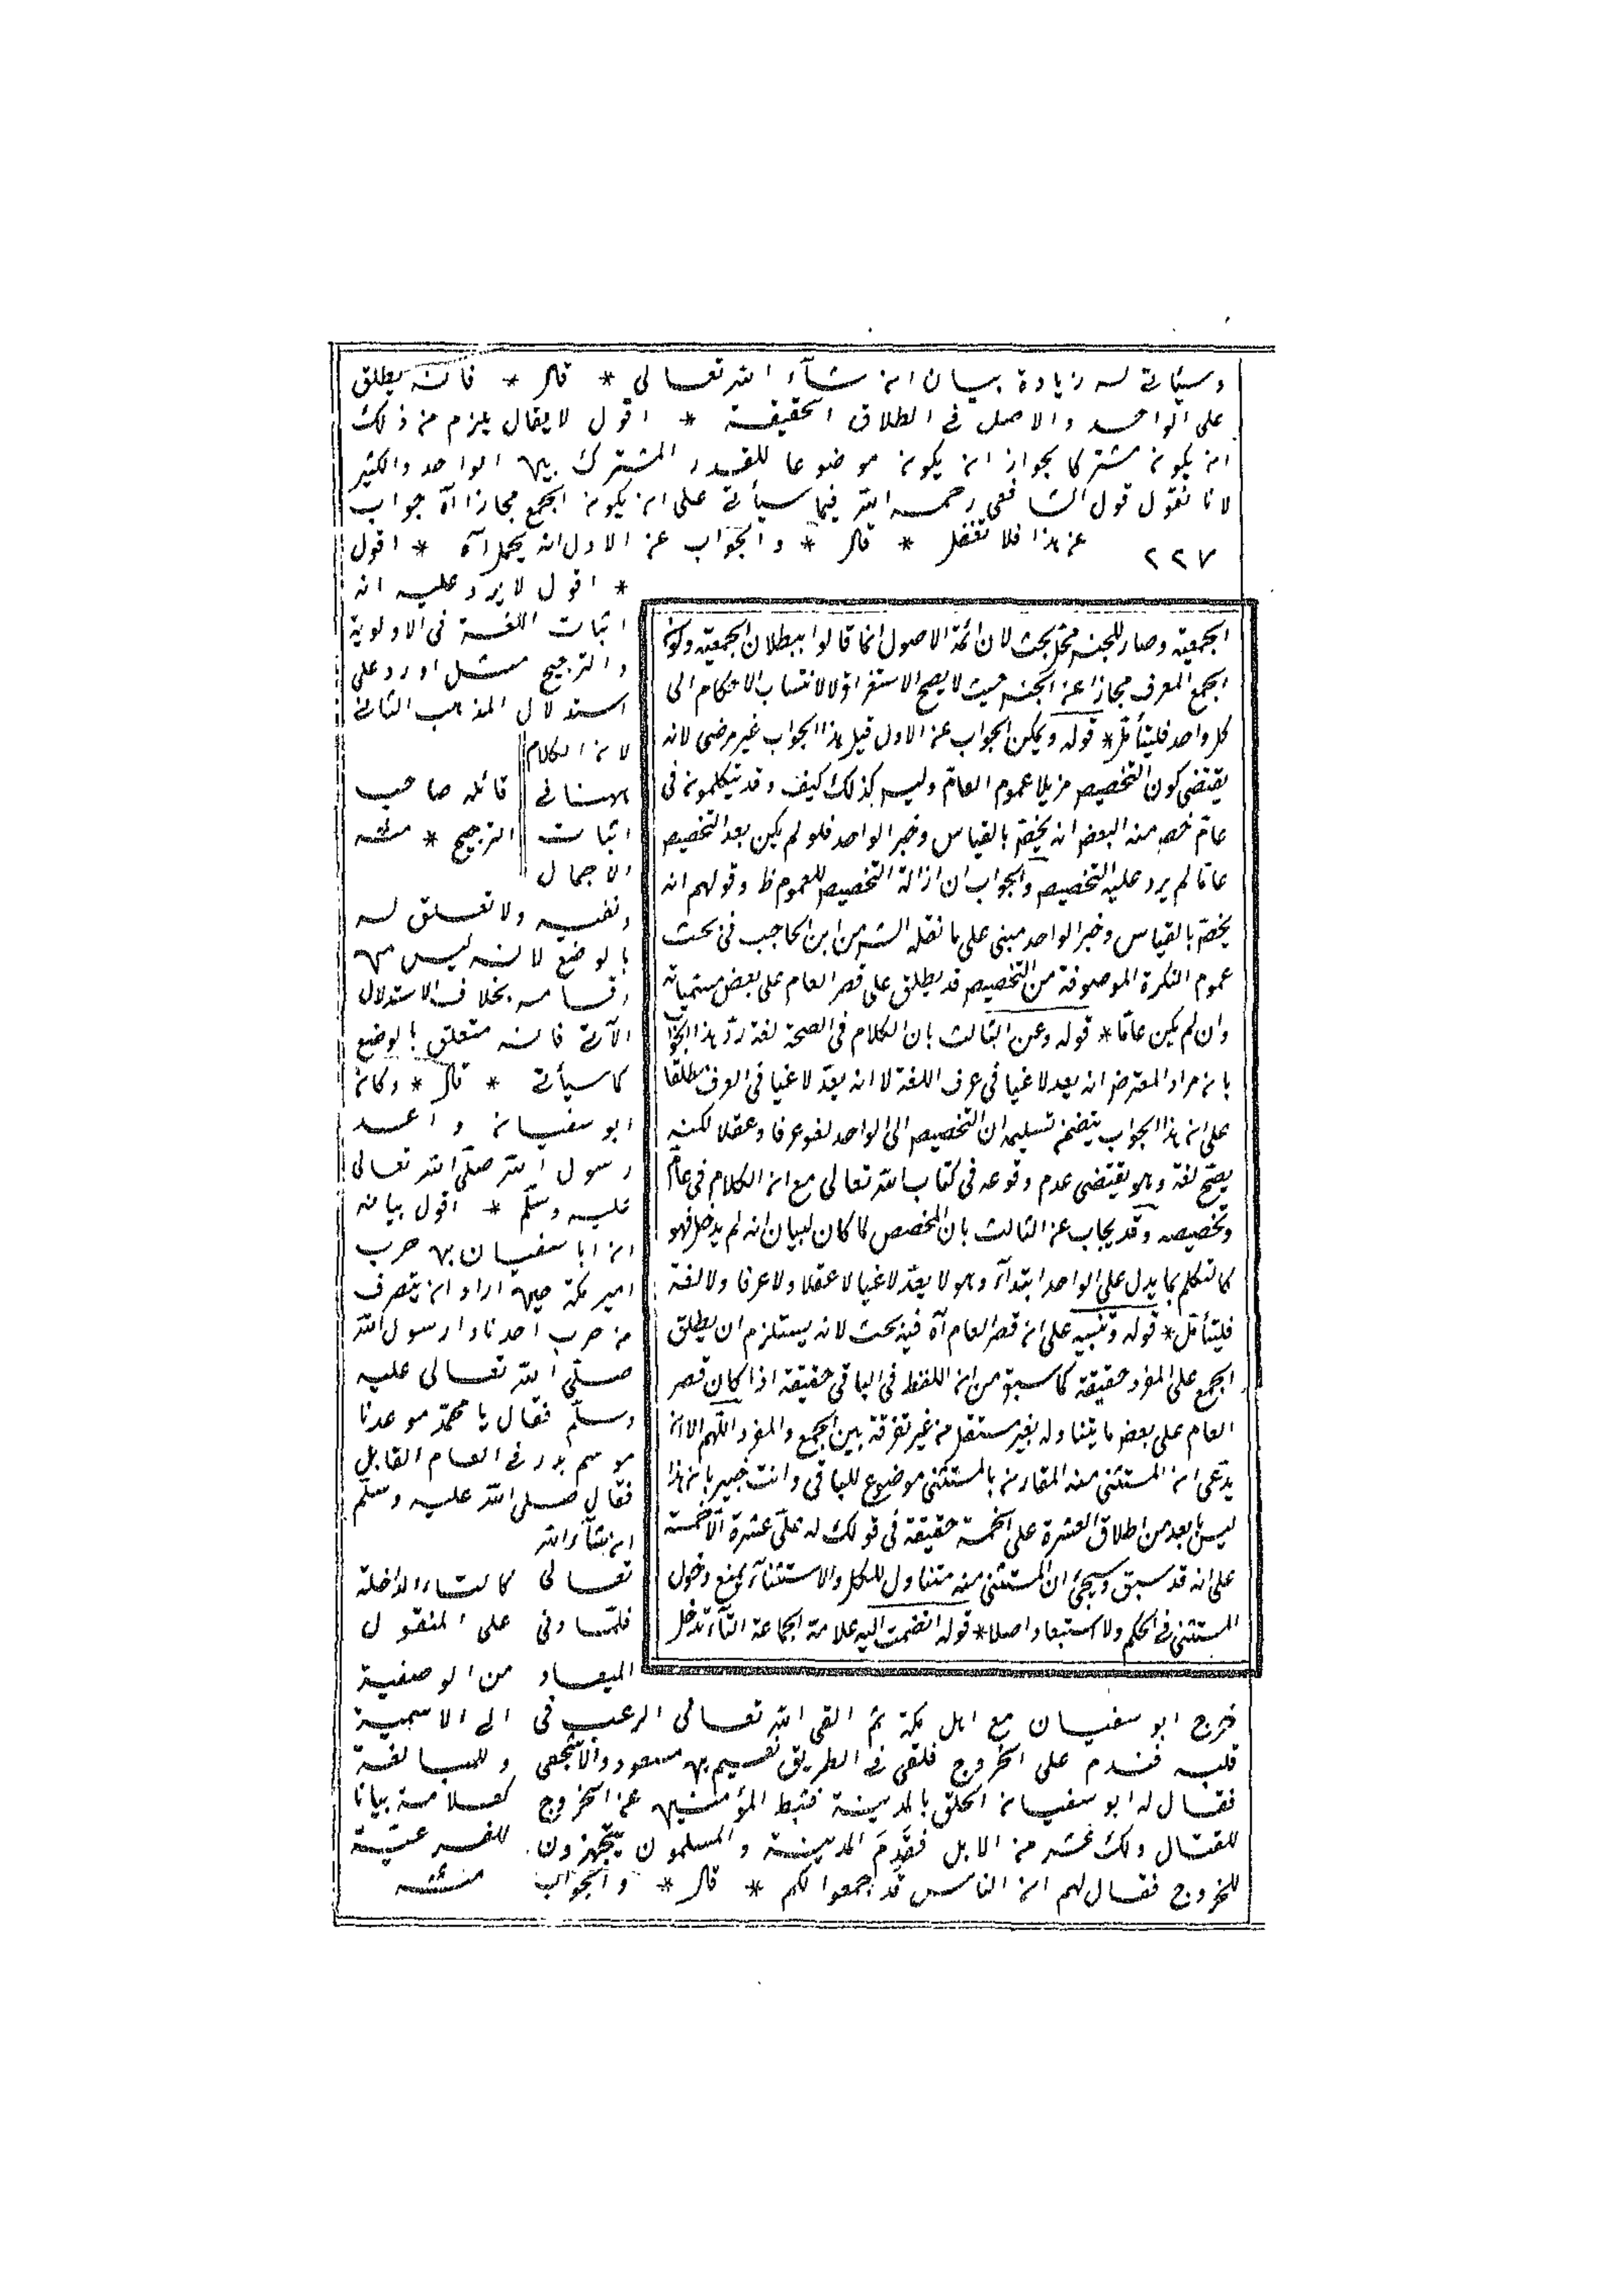 وسيأتى له زيادة بيان ان شآء الله تعالى * قال * فانه يطلق
على الواحد والاصل فى الطلاق الحقيقة * اقول لا يقال يلزم من ذلك
ان يكون مشتركا لجواز ان يكون موضوعا للقدر المشترك بين الواحد والكثير
لانا نقول قول الشافعى رحمه الله فيما سيأتى على ان يكون الجمع مجازا آه جواب
عن هذا فلا تغفل * قال * والجواب عن الاول انه يحمل آه * اقول
٢٢٧
* اقول لا يرد عليه انه
اثبات اللغة فى الاولوية
والترجيح مثل اورد على
استدلال المذهب الثانى
لان الكلام
ههنا فى
اثبات
الاجمال
ونفيه ولا تعلق له
بالوضع لانه ليس من
اقسامه بخلاف الاستدلال
الآتى فانه متعلق بالوضع
كما سيأتى * قال * وكان
ابو سفيان واعد
رسول الله صلى الله تعالى
عليه وسلم * اقول بيانه
ان ابا سفيان بن حرب
امير مكة حين اراد ان يتصرف
من حرب احد نادا رسول الله
صلى الله تعالى عليه
وسلم فقال يا محمد موعدنا
موسم بدر فى العام القابل
فقال صلى الله عليه وسلم
ان شآء الله
تعالى
فلما وفى
الميعاد
خرج ابو سفيان مع اهل مكة ثم القى الله تعالى الرعب فى
قلبه فندم على الخروج فلقى فى الطريق نعيم بن مسعود والاشجعى
فقال له ابو سفيان الحلق بالمدينة فثبط المؤمنين عن الخروج
للقتال ولك عشر من الابل فقدم المدينة والمسلمون يتجهزون
للخروج فقال لهم ان الناس قد جمعوا لكم * قال * والجواب
قائله صاحب
الترجيح * منه
كالتاء الداخلة
على المنقول
من الوصفية
الى الاسمية
وللمبالغة
كعلامة بيانا
للفرعية
منه
الجمعية وصار للجنس محل بحث لان ائمة الاصول انما قالوا ببطلان الجمعية وكون
الجمع المعرف مجازا عن الجنس حيث لا يصح الاستغراق لا لانتساب الاحكام الى
كل واحد فليتأمل * قوله ويمكن الجواب عن الاول قيل هذا الجواب غير مرضى لانه
يقتضى كون التخصيص مزيلا عموم العام وليس كذلك كيف وقد يتكلمون فى
عام خص منه البعض انه يخص بالقياس وخبر الواحد فلو لم يكن بعد التخصيص
عاما لم يرد عليه التخصيص والجواب ان ازالة التخصيص للعموم ظ وقولهم انه
يخص بالقياس وخبر الواحد مبنى على ما نقله الشه من ابن الحاجب فى بحث
عموم النكرة الموصوفة من التخصيص قد يطلق على قصر العام على بعض مسمياته
وان لم يكن عاما * قوله وعن الثالث بان الكلام فى الصحة لغة رد هذا الجواب
بان مراد المعترض انه يعد لاغيا فى عرف اللغة لا انه يعد لاغيا فى العرف مطلقا
على ان هذا الجواب يتضمن تسليم ان التخصيص الى الواحد لغو عرفا وعقلا لكنه
يصح لغة وهو يقتضى عدم وقوعه فى كتاب الله تعالى مع ان الكلام فى عام
وتخصيصه وقد يجاب عن الثالث بان المخصص لما كان لبيان انه لم يدخل فهو
كالتكلم بما يدل على الواحد ابتدآء وهو لا يعد لاغيا لا عقلا ولا عرفا ولا لغة
فليتأمل * قوله وتنبيه على ان قصر العام آه فيه بحث لانه يستلزم ان يطلق
الجمع على المفرد حقيقة كما سبق من ان اللفظ فى الباقى حقيقة اذا كان قصر
العام على بعض ما يتناوله بغير مستقل من غير تفرقة بين الجمع والمفرد اللهم الا ان
يدعى ان المستثنى منه المقارن بالمستثنى موضوع للباقى وانت خبير بان هذا
ليس بابعد من اطلاق العشرة على الخمسة حقيقة فى قولك له على عشرة الا خمسة
على انه قد سبق ويجئ ان المستثنى منه متناول للكل والاستثنآء يمنع دخول
المستثنى فى الحكم ولا استبعاد اصلا * قوله انضمت اليه علامة الجماعة التآء تدخل